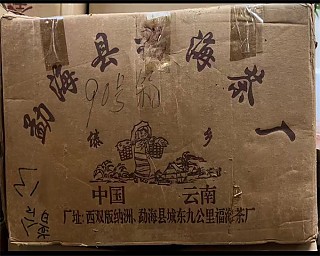 勐海县福海茶厂
傣 乡
中国 云南
厂址:西双版纳洲、勐海县城东九公里福海茶厂